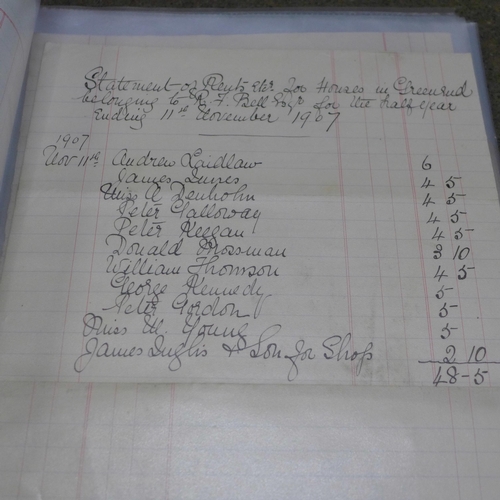 Statement of Rents etc. for Houses in Greenend
belonging to R. F. Bell Esqr. for the half year
Ending 11th November 1907
1907
Nov 11th Andrew Laidlaw 6
James Innes 4 5
Miss A Denholm 4 5
Peter Galloway 4 5
Peter Keegan 4 5
Donald Mossman 3 10
William Thomson 4 5
George Kennedy 5
Peter Gordon 5
Miss M. Young 5
James Inglis & Son for Shop 2 10
48-5